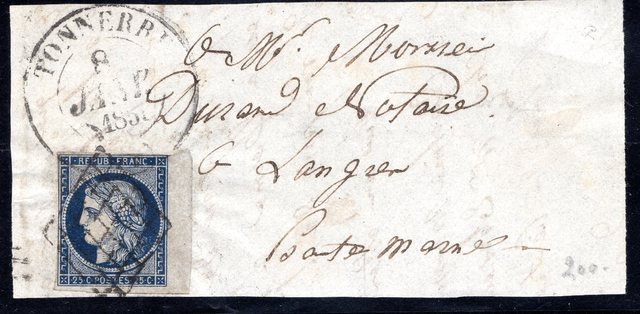 TONNERRE
8
JANV
185
REPUB. FRANC
25 C POSTES 25 C
a Mr. Monsieur
Durand Notaire
a Langres
haute marne
200-